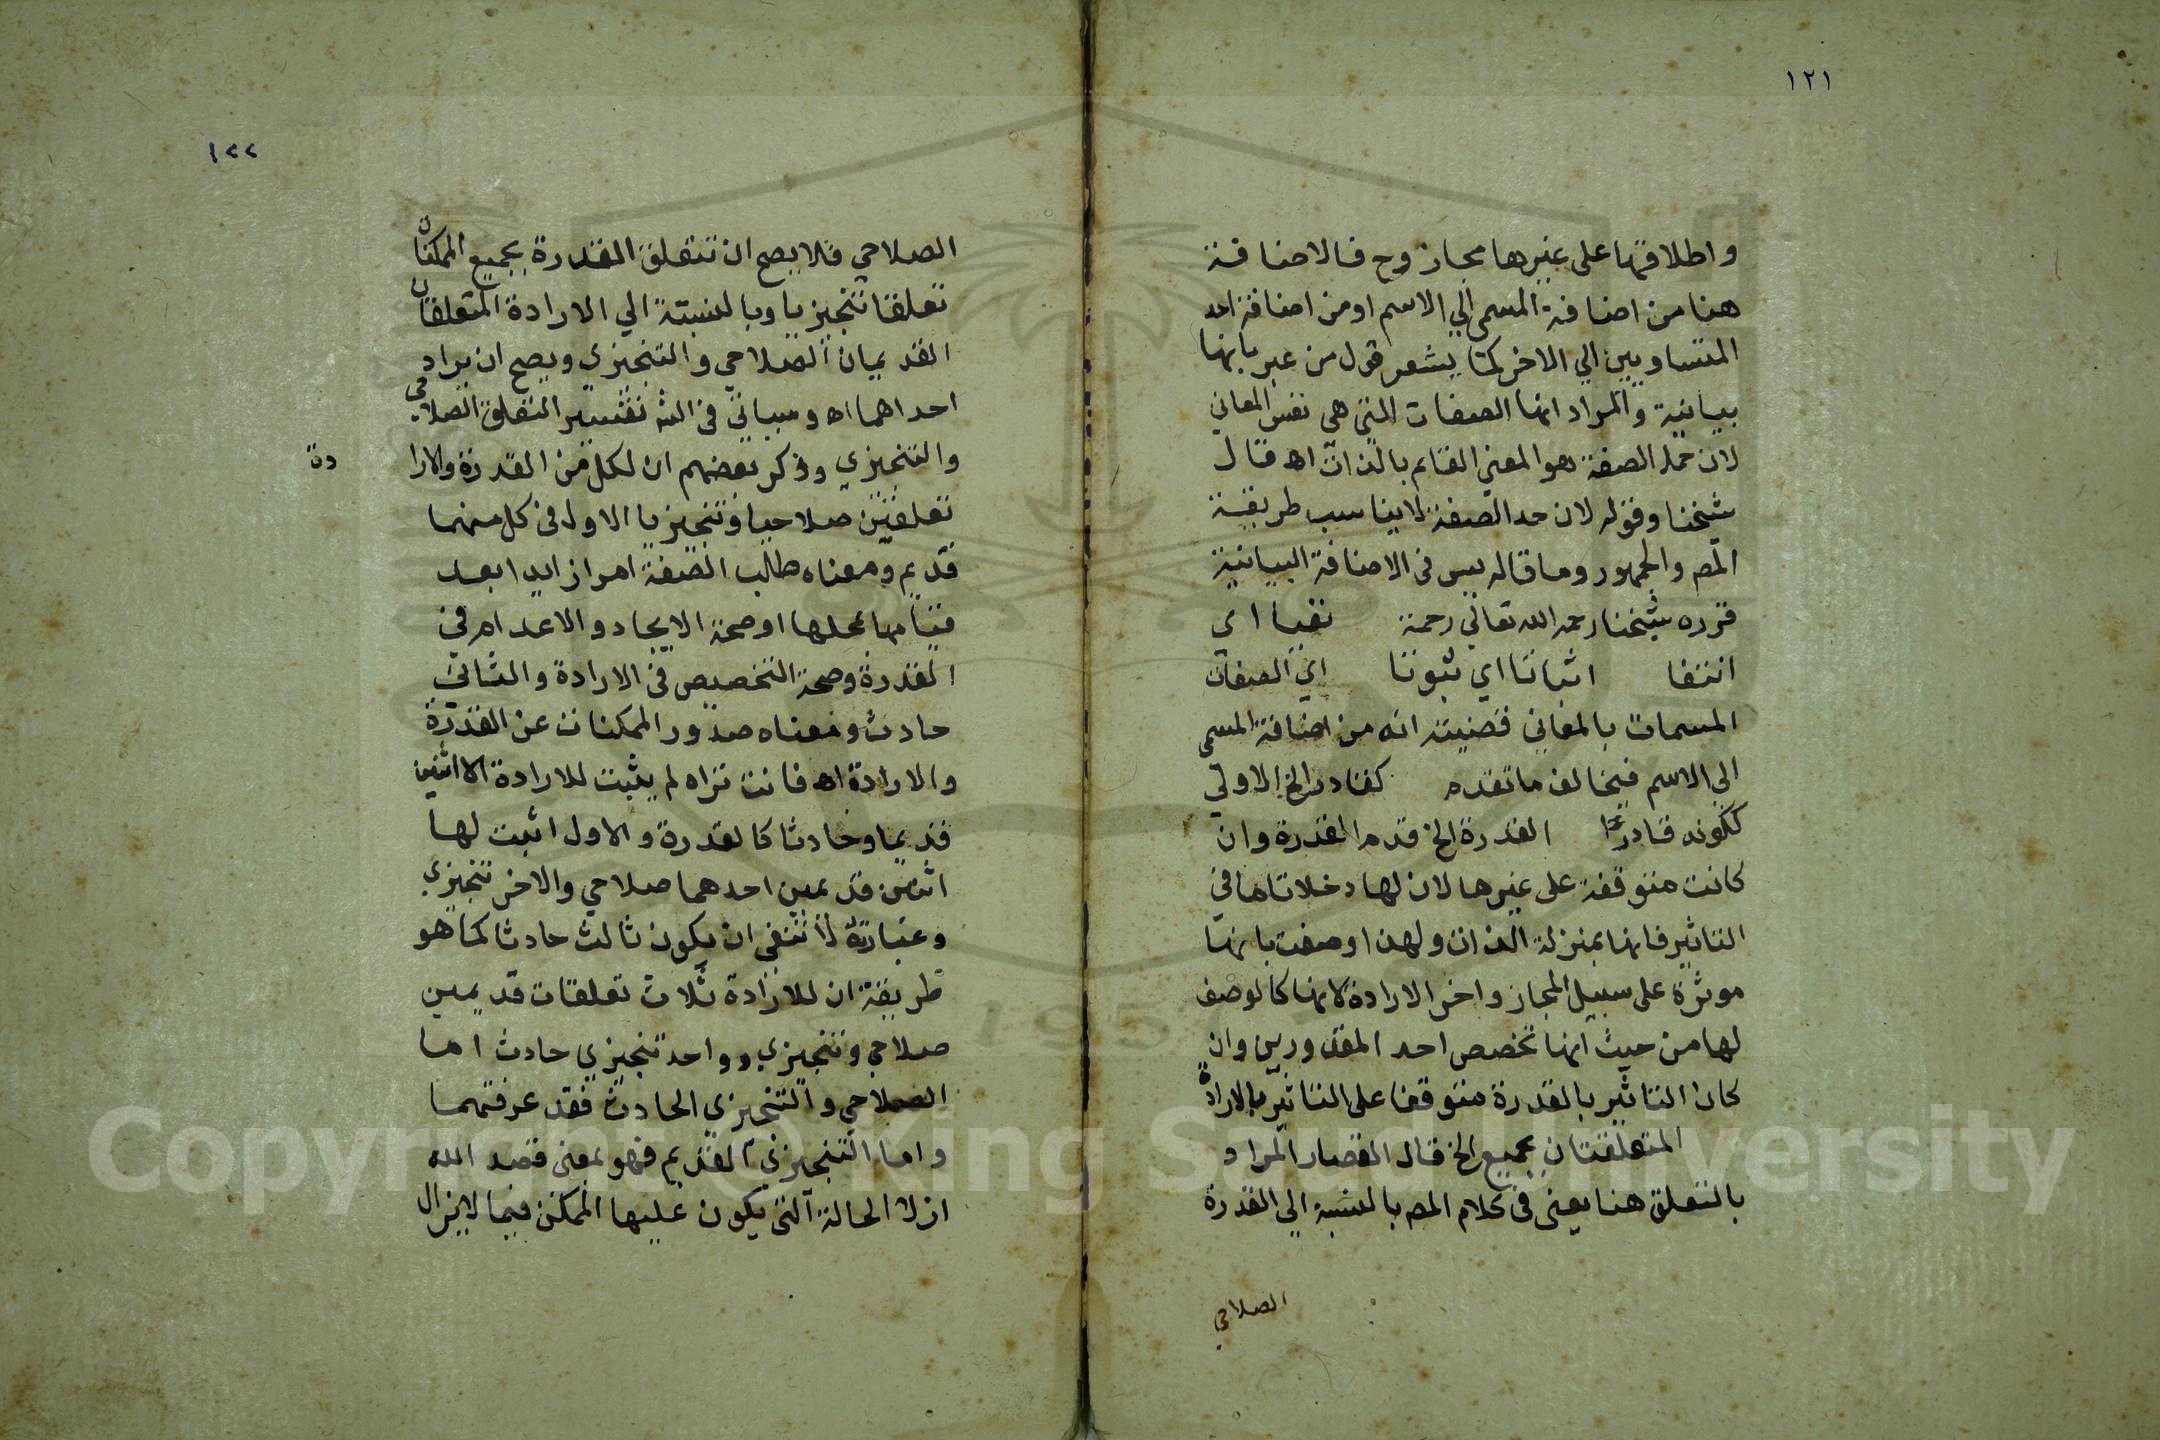 ١٢١
واطلاقها على غيرها مجاز وح فالاضافة
هنا من اضافة المسمى الي الاسم او من اضافة احد
المتساويين الي الاخر كما يشعر قول من عبر بانها
بيانية والمراد انها الصفات التي هي نفس المعاني
لان حد الصفة هو المعني القايم بالذات اه قال
شيخنا وقوله لان حد الصفة لا يناسب طريقة
المص والجمهور وما قاله يس في الاضافة البيانية
قرره شيخنا رحمه الله تعالي رحمة نفيا اي
انتفا اثباتا اي ثبوتا اي الصفات
المسمات بالمعاني قضيته انه من اضافة المسمى
الي الاسم فيخالف ما تقدم كقادر الخ الاولي
ككونه قادرا القدرة الخ قدم القدرة وان
كانت متوقفة على غيرها لان لها دخلا تاما في
التاثير فانها بمنزلة الذات ولهذا وصفت بانها
موثرة على سبيل المجاز واخر الارادة لانها كالوصف
لها من حيث انها تخصص احد المقدورين وان
كان التاثير بالقدرة متوقفا على التاثير بالارادة
المتعلقتان بجميع الخ قال القصار المراد
بالتعلق هنا يعني في كلام المص بالنسبة الي القدرة
الصلاحي
١٢٢
الصلاحي فلا يصح ان تتعلق القدرة بجميع الممكنات
تعلقا تنجيزيا وبالنسبة الي الارادة المتعلقان
القديمان الصلاحي والتنجيزي ويصح ان يراد
احداهما اه وسياتي في الش تفسير التعلق الصلاحي
والتنجيزي وذكر بعضهم ان لكل من القدرة والارا
دة
تعلقين صلاحيا وتنجيزيا الاول في كل منهما
قديم ومعناه طلب الصفة امرا زايدا بعد
قيامها بمحلها او صحة الايجاد والاعدام في
القدرة وصحة التخصيص في الارادة والثاني
حادث ومعناه صدور الممكنات عن القدرة
والارادة اه فانت تراه لم يثبت للارادة الا اثنين
قديما وحادثا كالقدرة والاول اثبت لها
اثنين قديمين احدهما صلاحي والاخر تنجيزي
وعبارته لا تنفي ان يكون ثالث حادثا كما هو
طريقة ان للارادة ثلاث تعلقات قديمين
صلاحي وتنجيزي وواحد تنجيزي حادث اما
الصلاحي والتنجيزي الحادث فقد عرفتهما
واما التنجيزي القديم فهو بمعنى قصد الله
ازلا الحالة التي يكون عليها الممكن فيما لا يزال
Copyright © King Saud University